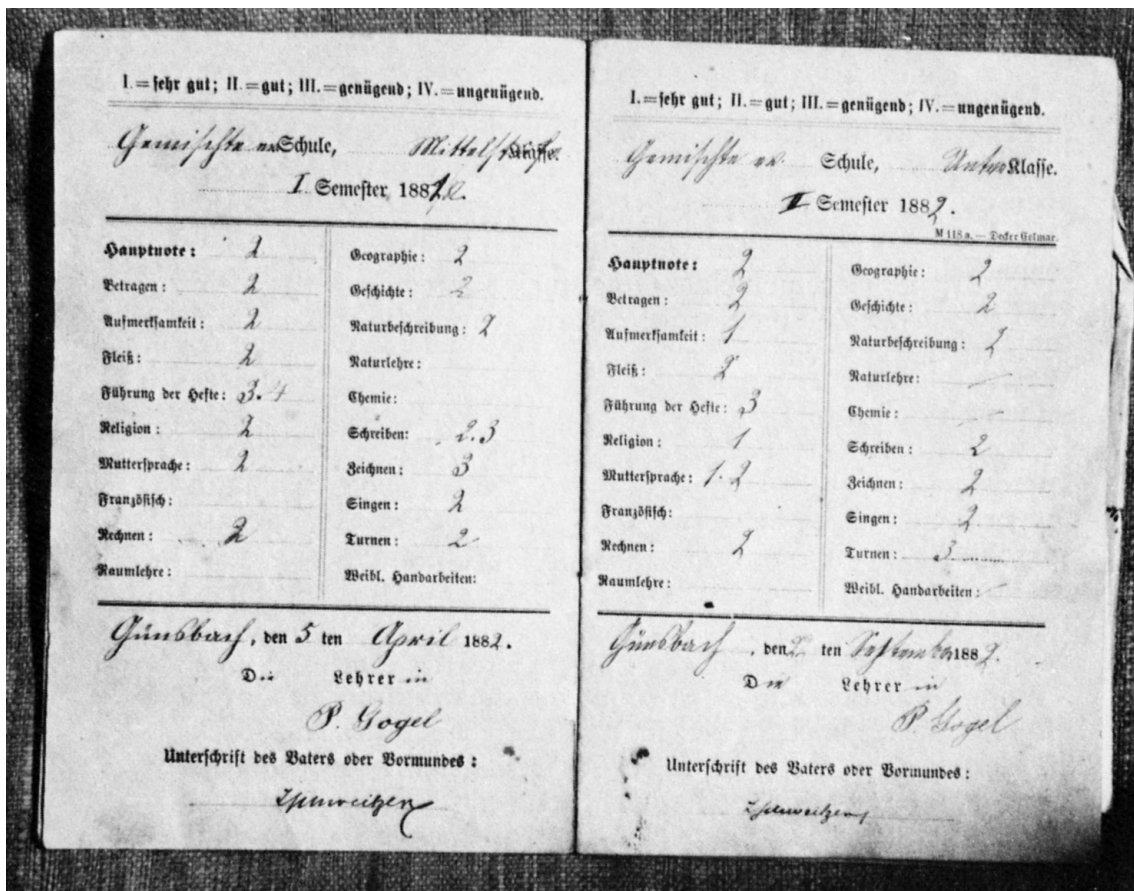 I.=sehr gut; II.=gut; III.=genügend; IV.=ungenügend.
Gemischte ev Schule,
I Semester 188
Hauptnote: 2
Betragen: 2
Aufmerksamkeit: 2
Fleiß: 2
Führung der Hefte: 3.4
Religion: 2
Muttersprache: 2
Französisch:
Rechnen: 2
Raumlehre:
Geographie: 2
Geschichte: 2
Naturbeschreibung: 2
Naturlehre:
Chemie:
Schreiben: 2.3
Zeichnen: 3
Singen: 2
Turnen: 2
Weibl. Handarbeiten:
Günsbach, den 5 ten April 1882.
Die Lehrerin
P. Gogel
Unterschrift des Vaters oder Vormundes:
Schweitzer
I.=sehr gut; II.=gut; III.=genügend; IV.=ungenügend.
Gemischte ev. Schule, Unter Klasse.
II Semester 1882.
M 118 a. — Decker Colmar.
Hauptnote: 2
Betragen: 2
Aufmerksamkeit: 1
Fleiß: 2
Führung der Hefte: 3
Religion: 1
Muttersprache: 1.2
Französisch:
Rechnen: 2
Raumlehre:
Geographie: 2
Geschichte: 2
Naturbeschreibung: 2
Naturlehre: —
Chemie: —
Schreiben: 2
Zeichnen: 2
Singen: 2
Turnen: 3
Weibl. Handarbeiten: —
Günsbach, den ten September 1882.
Die Lehrerin
P. Gogel
Unterschrift des Vaters oder Vormundes:
Schweitzer